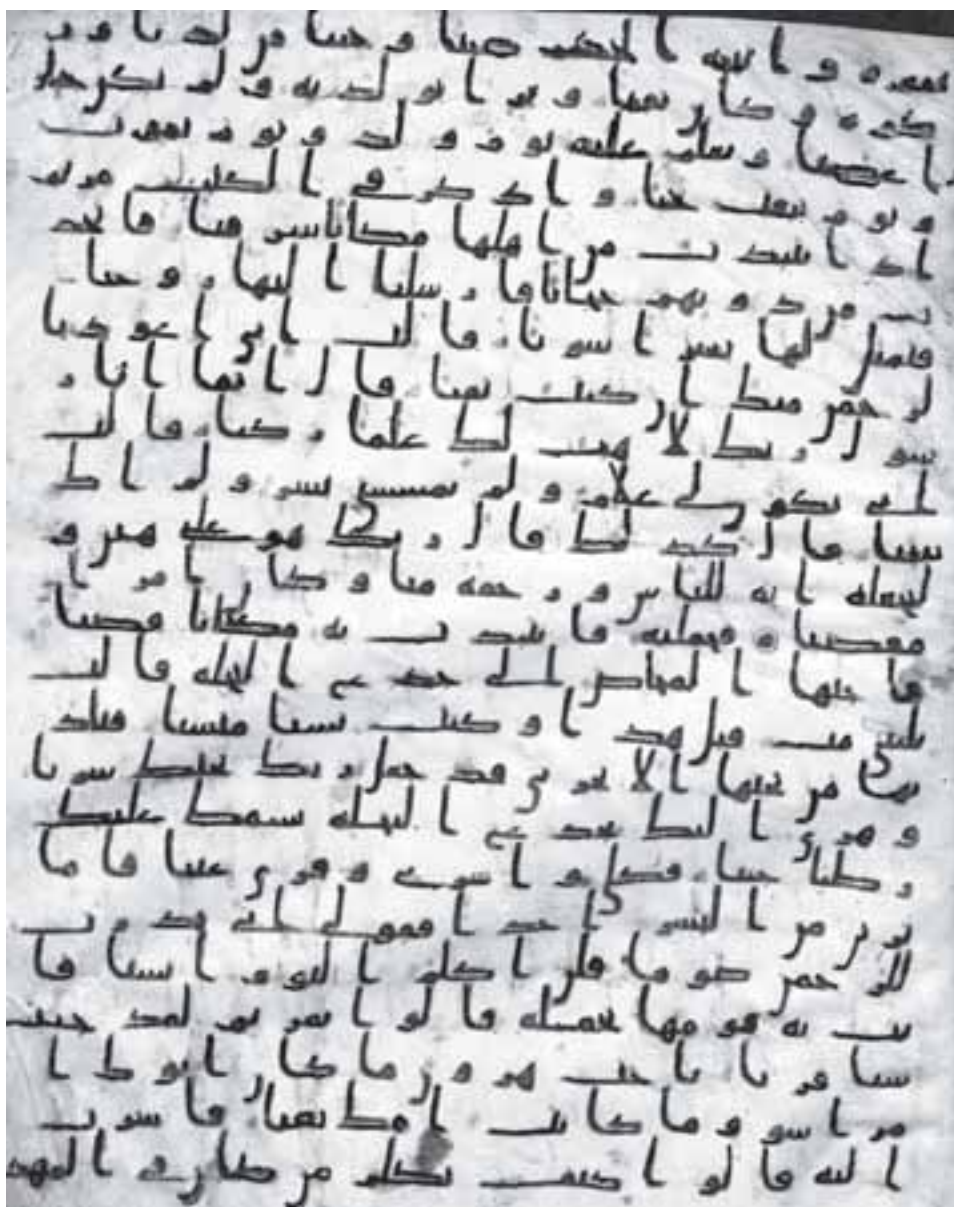 بقوه و اتينه الحكم صبيا و حنانا من لدنا و ز
كوه و كان تقيا و برا بولديه و لم يكن جبا
را عصيا و سلم عليه يوم ولد و يوم يموت
و يوم يبعث حيا و اذكر في الكتب مريم
اذ انتبذت من اهلها مكانا شرقيا فاتخذ
ت من دونهم حجابا فارسلنا اليها روحنا
فتمثل لها بشرا سويا قالت اني اعوذ با
لرحمن منك ان كنت تقيا قال انما انا ر
سول ربك لاهب لك غلما زكيا قالت
انى يكون لي غلم و لم يمسسني بشر و لم اك
بغيا قال كذلك قال ربك هو علي هين و
لنجعله ايه للناس و رحمه منا و كان امرا
مقضيا فحملته فانتبذت به مكانا قصيا
فاجاها المخاض الى جذع النخله قالت
يليتني مت قبل هذا و كنت نسيا منسيا فناد
يها من تحتها الا تحزني قد جعل ربك تحتك سريا
و هزي اليك بجذع النخله تسقط عليك
رطبا جنيا فكلي و اشربي و قري عينا فاما
ترين من البشر احدا فقولي اني نذرت
للرحمن صوما فلن اكلم اليوم انسيا فا
تت به قومها تحمله قالوا يمريم لقد جيت
شيا فريا ياخت هرون ما كان ابوك ا
مرا سو و ما كانت امك بغيا فاشرت
اليه قالوا كيف نكلم من كان في المهد